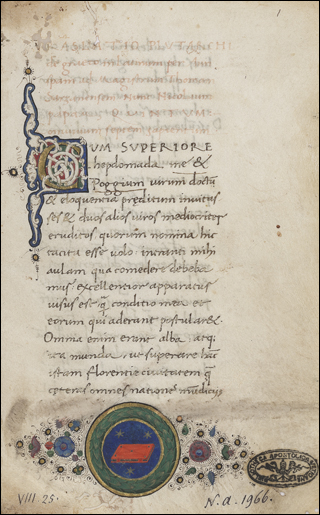 1
CUM SUPERIORE
hepdomada me &
Poggium virum doctũ
& eloquencia preditum invitas
ses & duos alios viros mediocriter
eruditos quorum nomina hic
tacita esse volo intranti mihi
aulam qua comedere debeba
mus excellentior apparatus
visus est q̃ conditio mea et
eorum qui aderant postularet.
Omnia enim erant alba atq
ita munda, ut superare hac
istam florentie civitatem
ceteras omnes
VIII 25.
N. a. 1966.